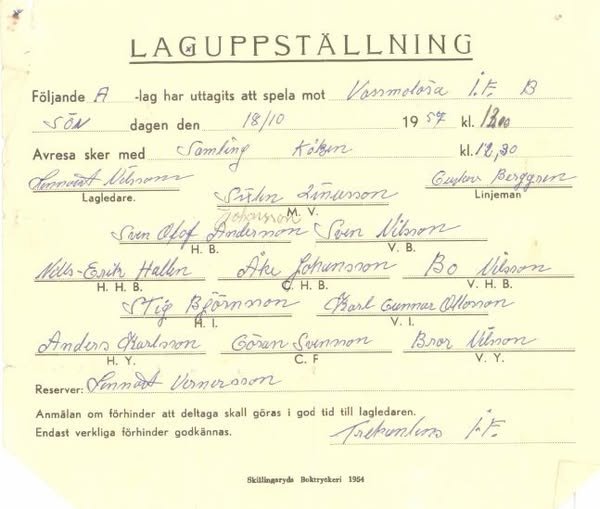 LAGUPPSTÄLLNING
Följande A -lag har uttagits att spela mot Vassmolösa I.F. B
SÖN dagen den 18/10 1957 kl. 13.00
Avresa sker med Samling Köken kl. 12,30
Lennart Nilsson Sixten Einarsson Gustav Berggren
Lagledare. M. V. Linjeman
Johansson
Sven Olof Andersson Sven Nilsson
H. B. V. B.
Nils-Erik Hallen Åke Johansson Bo Nilsson
H. H. B. C. H. B. V. H. B.
Stig Björnsson Karl Gunnar Ottosson
H. I. V. I.
Anders Karlsson Göran Svensson Bror Nilsson
H. Y. C. F V. Y.
Reserver: Lennart Vernersson
Anmälan om förhinder att deltaga skall göras i god tid till lagledaren.
Endast verkliga förhinder godkännas. Trekantens I.F.
Skillingaryds Boktryckeri 1954